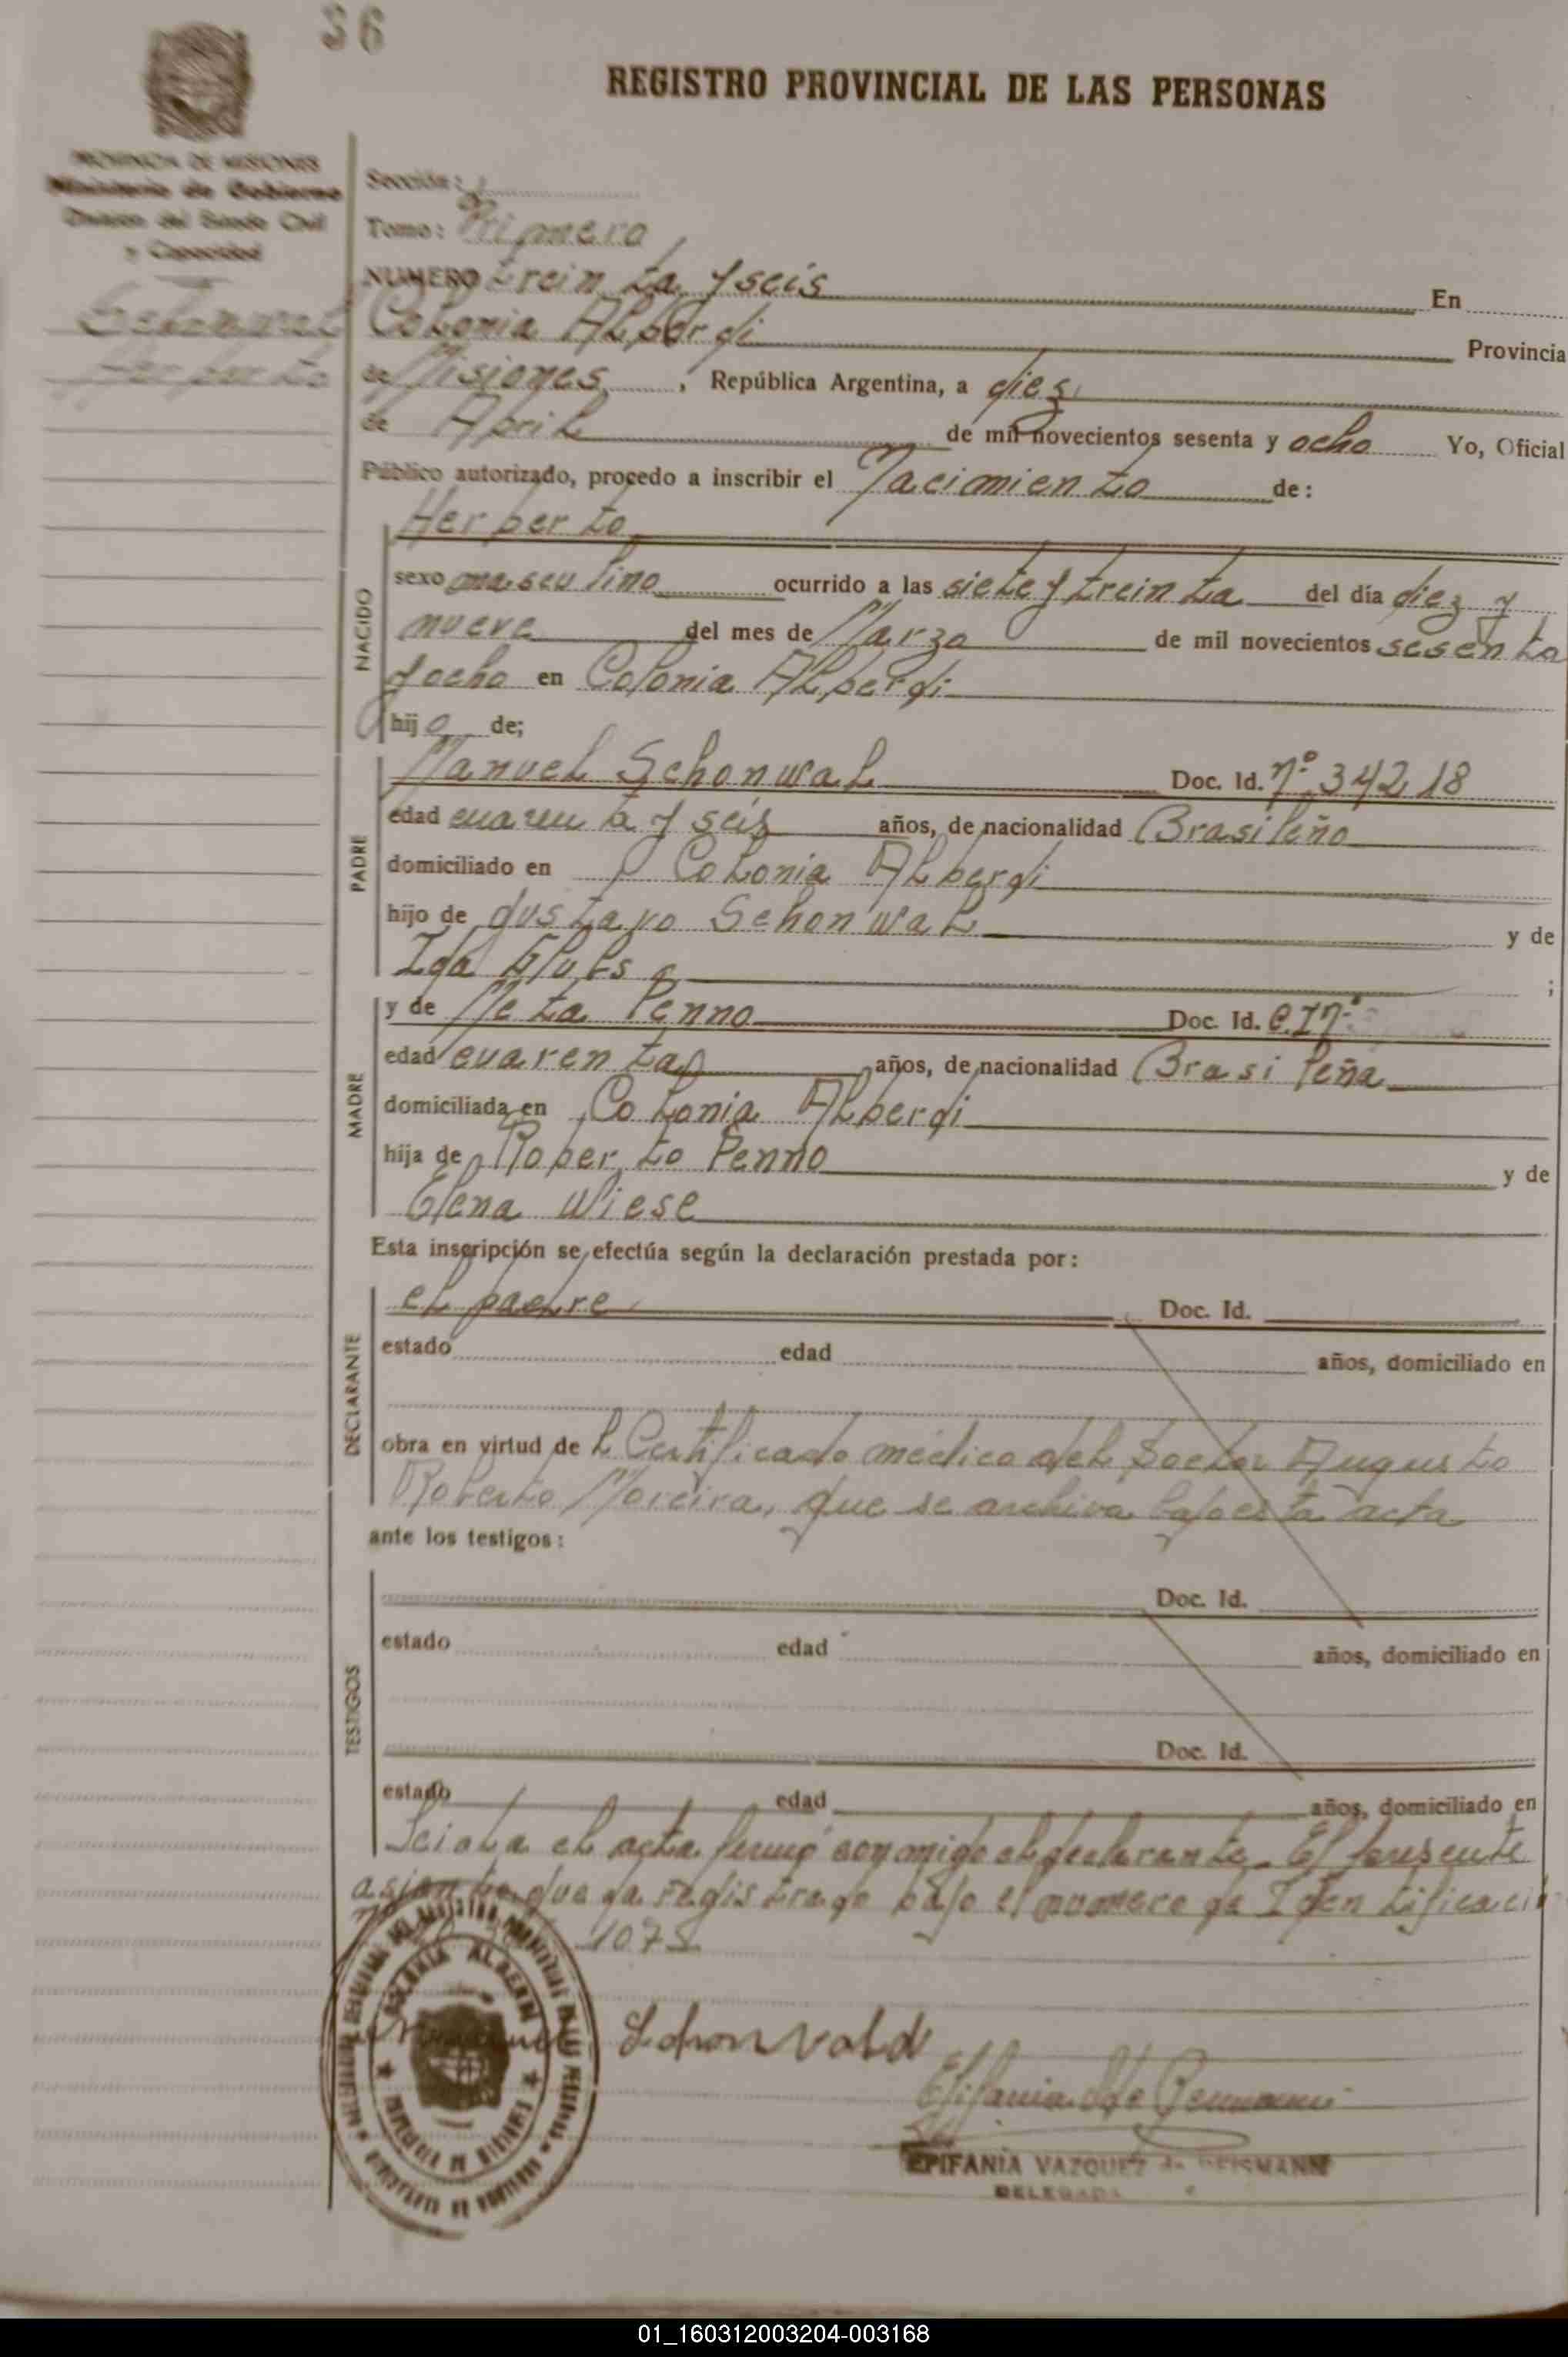 36
REGISTRO PROVINCIAL DE LAS PERSONAS
PROVINCIA DE MISIONES
Ministerio de Gobierno
División del Estado Civil
y Capacidad
Schonwal
Herberto
Sección: 1
Tomo: Primero
NUMERO treinta y seis En
Colonia Alberdi Provincia
de Misiones, República Argentina, a diez
de Abril de mil novecientos sesenta y ocho Yo, Oficial
Público autorizado, procedo a inscribir el Nacimiento de:
NACIDO
Herberto
sexo masculino ocurrido a las siete y treinta del día diez y
nueve del mes de Marzo de mil novecientos sesenta
y ocho en Colonia Alberdi
hijo de;
PADRE
Manuel Schonwal Doc. Id. nº 34218
edad cuarenta y seis años, de nacionalidad Brasileño
domiciliado en Colonia Alberdi
hijo de Gustavo Schonwal y de
Ida ;
MADRE
y de Meta Penno Doc. Id. C.I nº
edad cuarenta años, de nacionalidad Brasileña
domiciliada en Colonia Alberdi
hija de Roberto Penno y de
Elena Wiese
Esta inscripción se efectúa según la declaración prestada por:
DECLARANTE
el padre Doc. Id.
estado edad años, domiciliado en
obra en virtud del Certificado médico del Doctor Augusto
Roberto Moreira, que se archiva bajo esta acta
ante los testigos:
TESTIGOS
Doc. Id.
estado edad años, domiciliado en
Doc. Id.
estado edad años, domiciliado en
Leida el acta firmó conmigo el declarante. El presente
asiento queda registrado bajo el numero de Identificació
COLONIA ALBERDI
PROVINCIA DE MISIONES
Schonvald
Epifania V. de Beismann
EPIFANIA VAZQUEZ de BEISMANN
DELEGADA
01_160312003204-003168